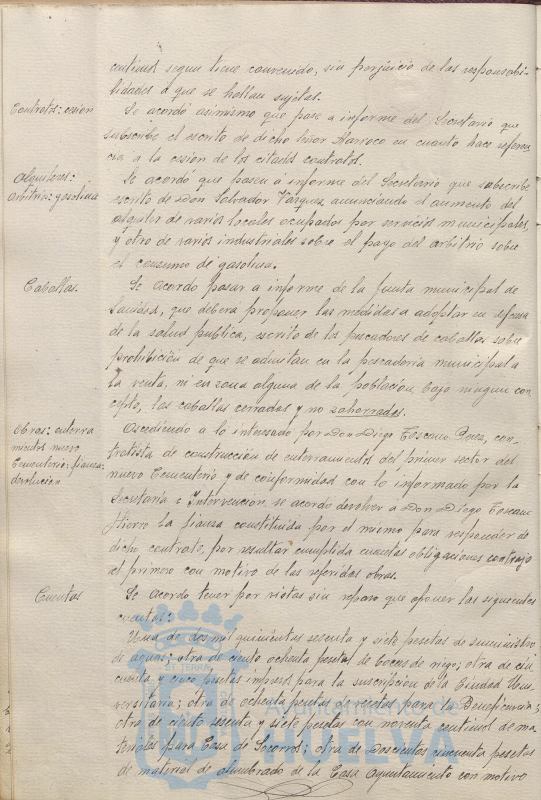 centimos segun tiene convenido, sin perjuicio de las responsabi-
lidades a que se hallan sujetas.
Contratos: cesion
Se acordó asimismo que pase a informe del Secretario que
subscribe el escrito de dicho Señor Marroco en cuanto hace referen
cia a la cesion de los citados contratos.
Alquileres:
Arbitrio: gasolina
Se acordó que pasen a informe del Secretario que subscribe
escrito de Don Salvador Vazquez anunciando el aumento del
alquiler de varios locales ocupados por servicios municipales,
y otro de varios industriales sobre el pago del arbitrio sobre
el consumo de gasolina.
Caballas.
Se acordo pasar a informe de la Junta municipal de
Sanidad, que deberá proponer las medidas a adoptar en defensa
de la salud publica, escrito de los pescadores de caballas sobre
prohibición de que se admitan en la pescaderia municipal a
la venta, ni en zona alguna de la poblacion bajo ningun con
cepto, las caballas cerradas y no zahorradas.
Obras: enterra
mientos nuevo
Cementerio: fianza:
devolucion
Accediendo a lo interesado por Don Diego Toscano Perez, con-
tratista de construcción de enterramientos del primer sector del
nuevo Cementerio y de conformidad con lo informado por la
Secretaria e Intervención, se acordo devolver a Don Diego Toscano
Fierro la fianza constituida por el mismo para responder de
dicho contrato, por resultar cumplida cuantas obligaciones contrajo
el primero con motivo de las referidas obras.
Cuentas
Se acordo tener por vistas sin reparo que oponer las siguientes
cuentas:
Una de dos mil quinientas sesenta y siete pesetas de suministro
de aguas; otra de ciento ochenta pesetas de bocas de riego; otra de cin
cuenta y cinco pesetas impreso para la suscripcion de la Ciudad Uni-
versitaria; otra de ochenta pesetas de recetas para la Beneficencia;
otra de ciento sesenta y siete pesetas con noventa centimos de ma-
teriales para Casa de Socorros; otra de Doscientos cincuenta pesetas
de material de alumbrado de la Casa Ayuntamiento con motivo
HUELVA